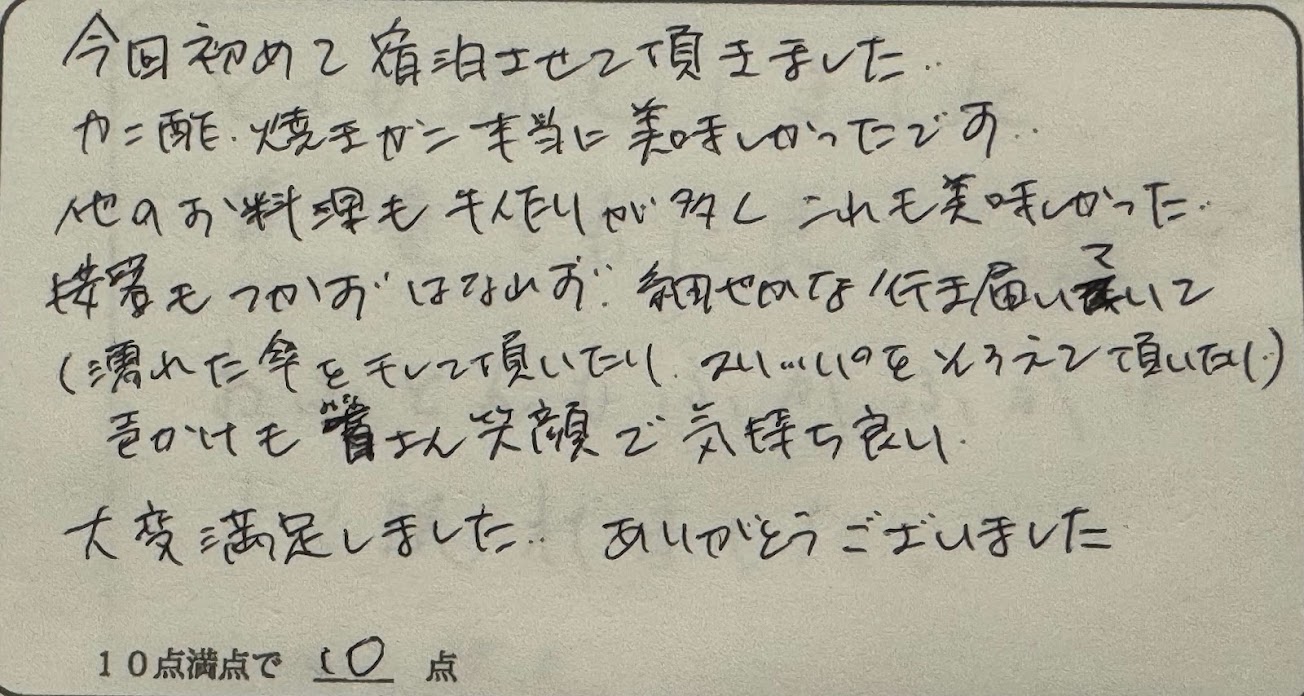 今回初めて宿泊させて頂きました..
カニ酢.焼きガニ本当に美味しかったです..
他のお料理も 牛んたりが多く これも美味しかった.
接客もつかずはなれず. 細やかな行き届いていて
(濡れた傘を干して頂いたり. スリッパをそろえて頂いたり.)
声かけも 皆さん笑顔で気持ち良い.
大変満足しました.. ありがとうございました
10点満点で 10 点